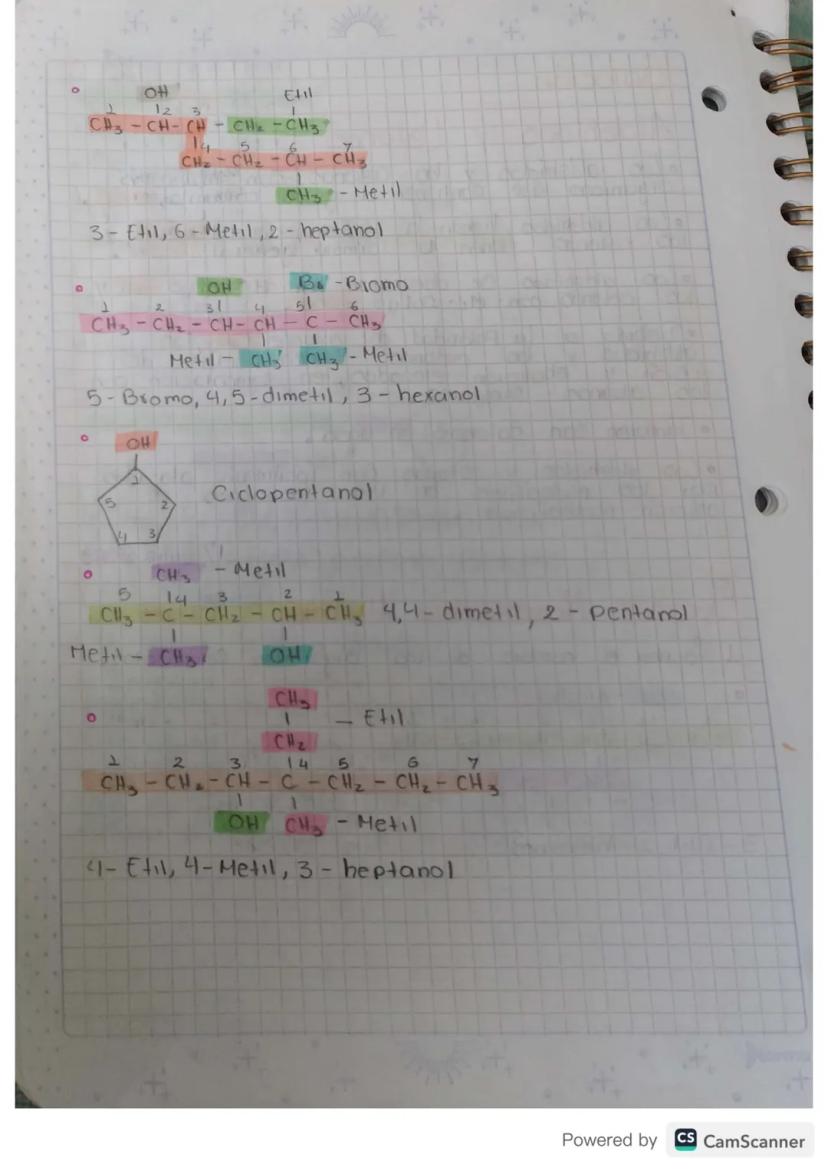 OH Etil
1 2 3
CH₃ - CH - CH - CH₂ - CH₃
4 5 6 7
CH₂ - CH₂ - CH - CH₃
CH₃ - Metil
3 - Etil, 6 - Metil, 2 - heptanol
OH Br - Bromo
1 2 3 4 5 6
CH₃ - CH₂ - CH - CH - C - CH₃
Metil - CH₃ CH₃ - Metil
5 - Bromo, 4,5 - dimetil, 3 - hexanol
OH
1
5 2 Ciclopentanol
4 3
CH₃ - Metil
5 4 3 2 1
CH₃ - C - CH₂ - CH - CH₃ 4,4 - dimetil, 2 - Pentanol
Metil - CH₃ OH
CH₃
- Etil
CH₂
1 2 3 4 5 6 7
CH₃ - CH₂ - CH - C - CH₂ - CH₂ - CH₃
OH CH₃ - Metil
4 - Etil, 4 - Metil, 3 - heptanol
Powered by CS CamScanner